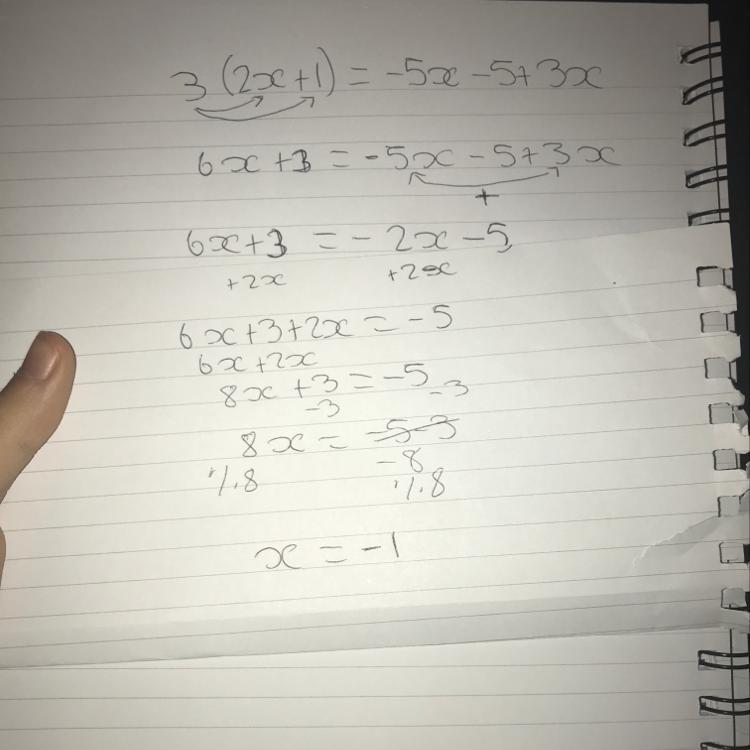 3 (2x+1) = -5x -5+3x
6x+3 = -5x -5+3x
+
6x+3 = - 2x -5
+2x +2x
6x+3+2x = -5
6x+2x
8x +3 = -5
-3 -3
8x = -5-3
-8
·/.8 ·/.8
x = -1